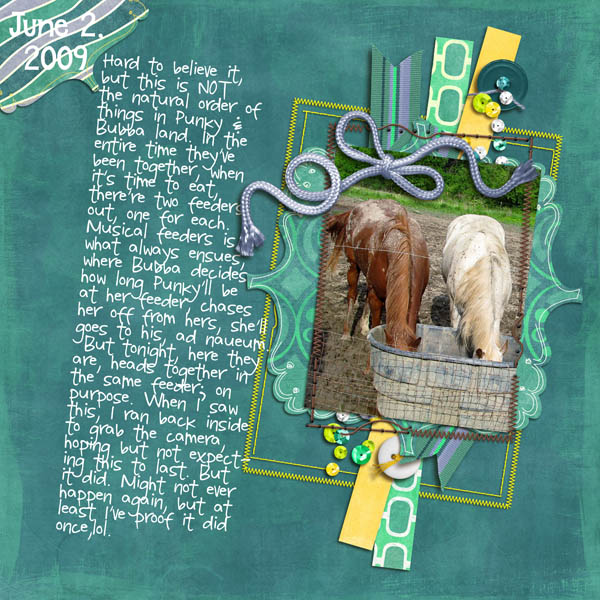 June 2,
2009
Hard to believe it,
but this is NOT
the natural order of
things in Punky &
Bubba land. In the
entire time they've
been together, when
it's time to eat,
there're two feeders
out, one for each.
Musical feeders is
what always ensues,
where Bubba decides
how long Punky'll be
at her feeder, chases
her off from hers, she
goes to his, ad naueum.
But tonight, here they
are, heads together in
the same feeder; on
purpose. When I saw
this, I ran back inside
to grab the camera,
hoping but not expect-
ing this to last. But
it did. Night not ever
happen again, but at
least I've proof it did
once,lol.